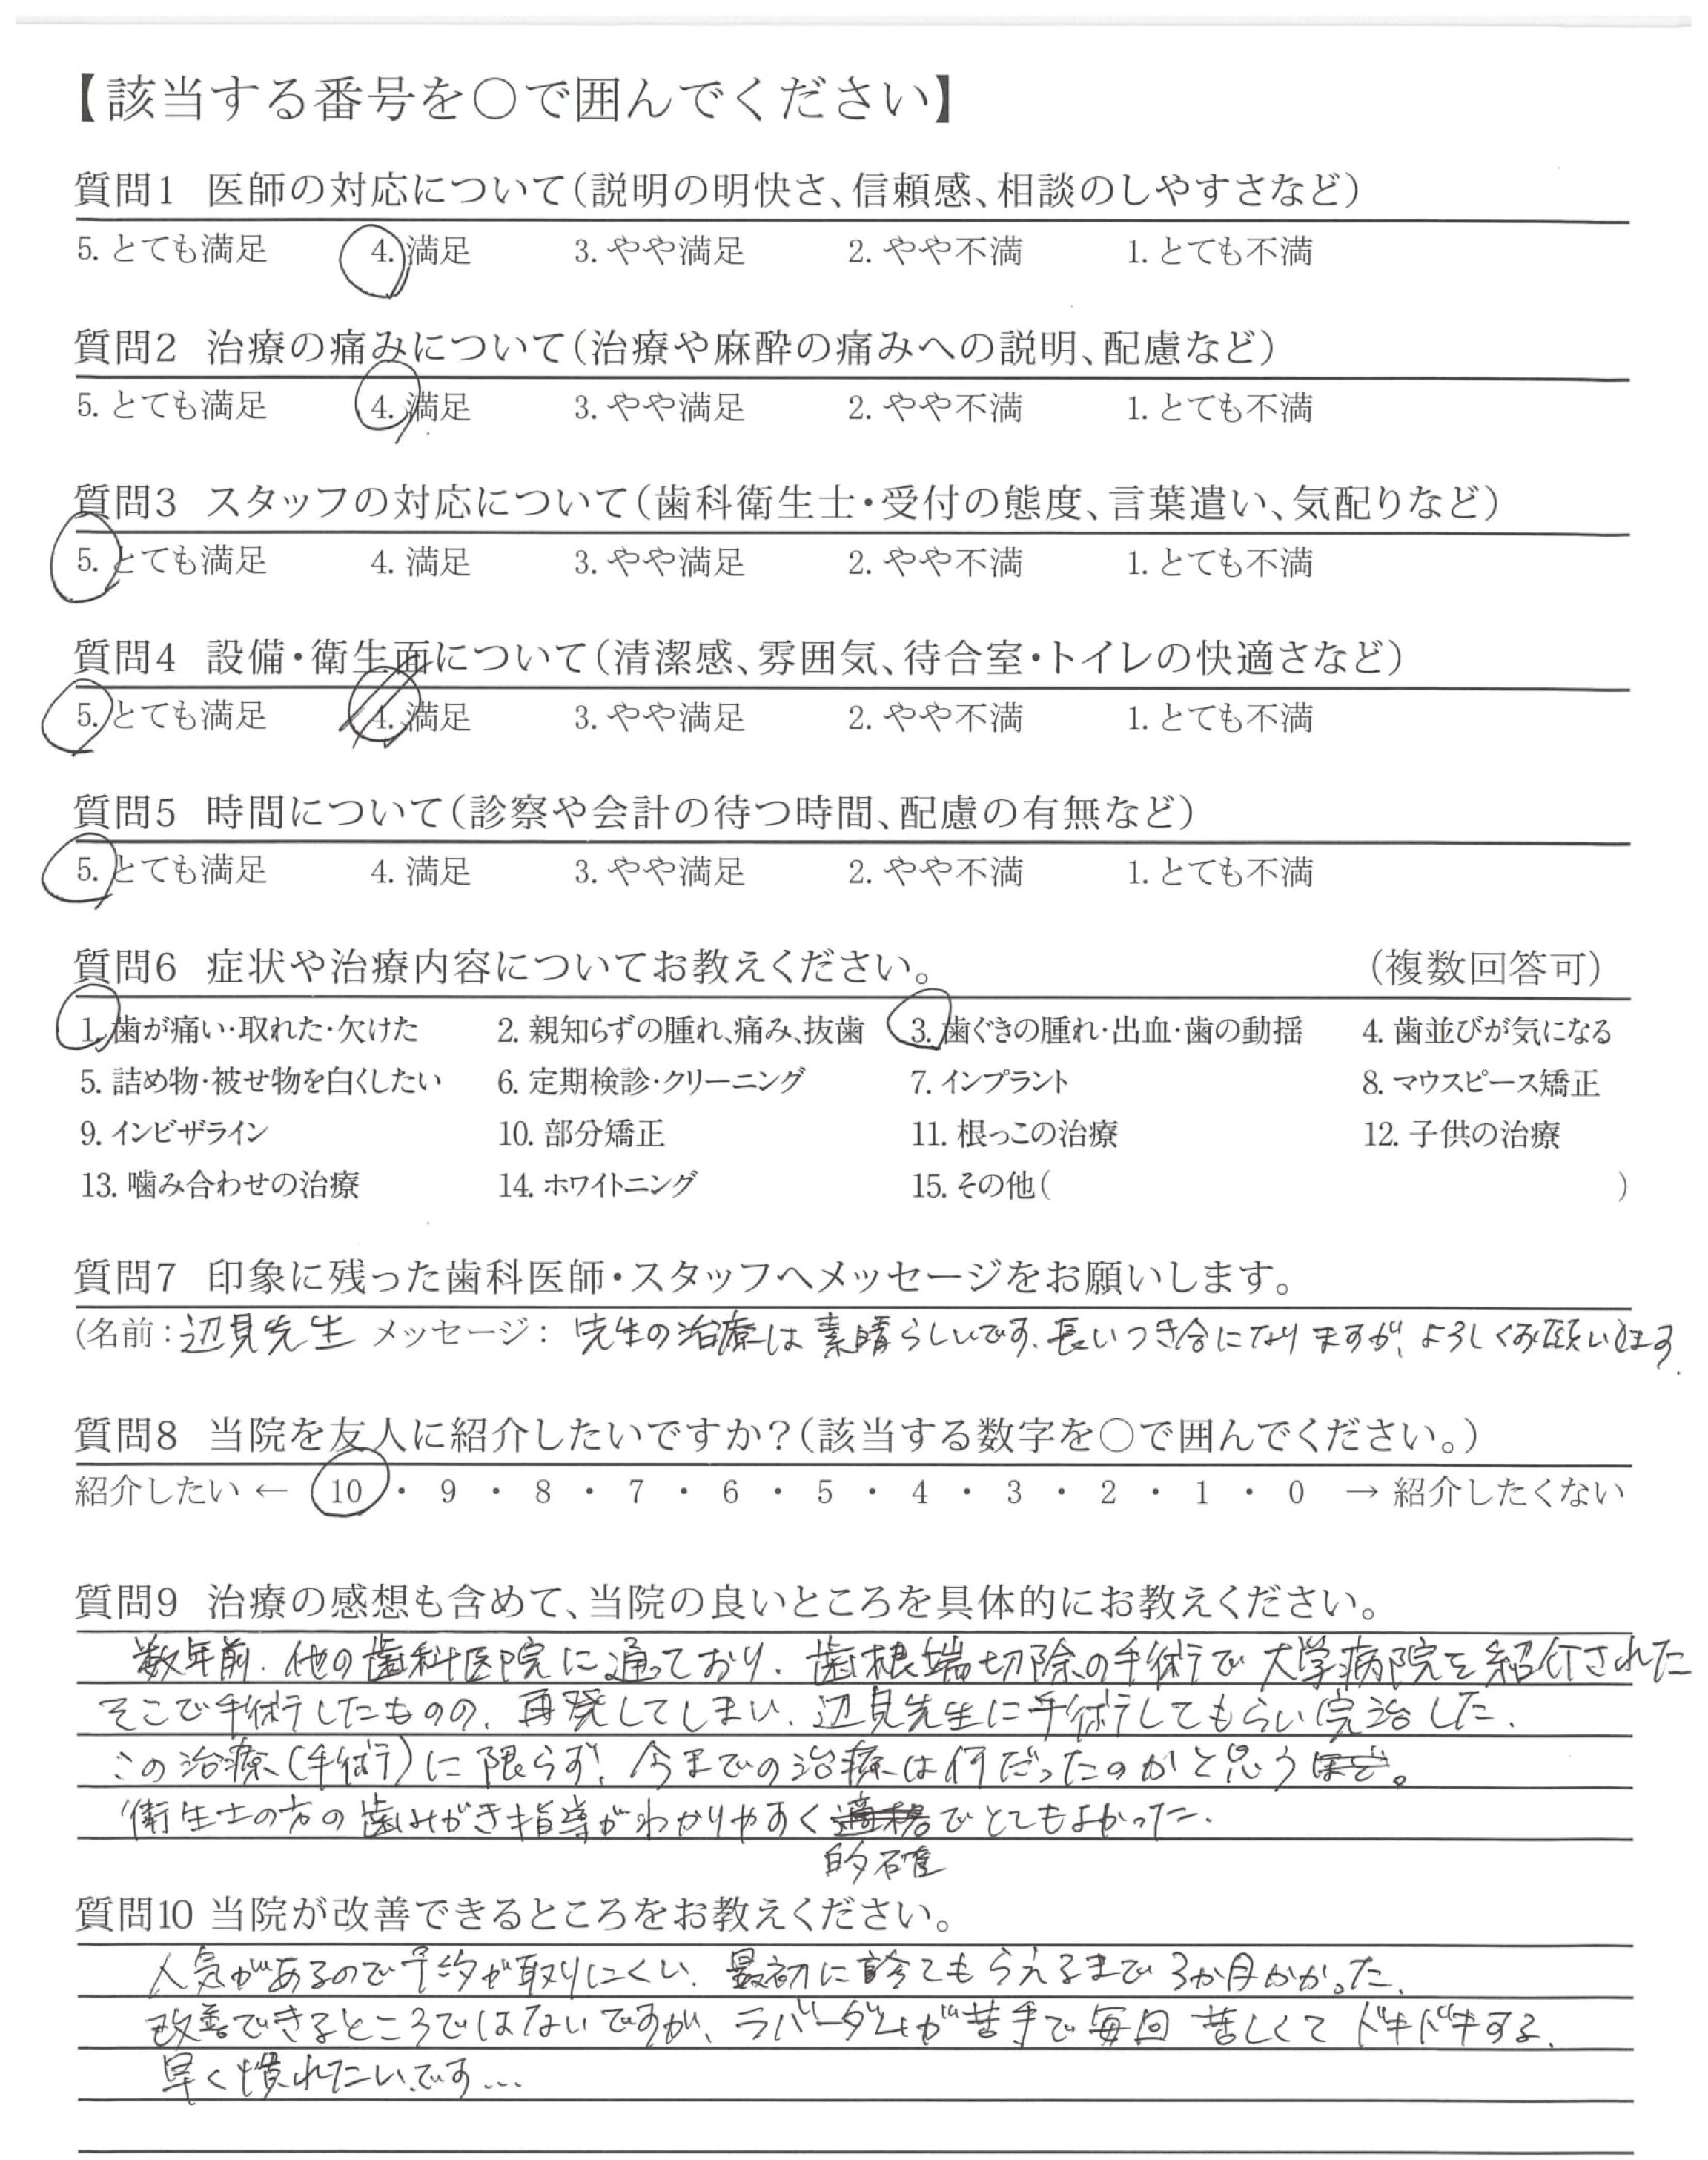 【該当する番号を○で囲んでください】
質問1 医師の対応について(説明の明快さ、信頼感、相談のしやすさなど)
5. とても満足 4. 満足 3. やや満足 2. やや不満 1. とても不満
質問2 治療の痛みについて(治療や麻酔の痛みへの説明、配慮など)
5. とても満足 4. 満足 3. やや満足 2. やや不満 1. とても不満
質問3 スタッフの対応について(歯科衛生士・受付の態度、言葉遣い、気配りなど)
5. とても満足 4. 満足 3. やや満足 2. やや不満 1. とても不満
質問4 設備・衛生面について(清潔感、雰囲気、待合室・トイレの快適さなど)
5. とても満足 4. 満足 3. やや満足 2. やや不満 1. とても不満
質問5 時間について(診察や会計の待つ時間、配慮の有無など)
5. とても満足 4. 満足 3. やや満足 2. やや不満 1. とても不満
質問6 症状や治療内容についてお教えください。 (複数回答可)
1. 歯が痛い・取れた・欠けた 2. 親知らずの腫れ、痛み、抜歯 3. 歯ぐきの腫れ・出血・歯の動揺 4. 歯並びが気になる
5. 詰め物・被せ物を白くしたい 6. 定期検診・クリーニング 7. インプラント 8. マウスピース矯正
9. インビザライン 10. 部分矯正 11. 根っこの治療 12. 子供の治療
13. 噛み合わせの治療 14. ホワイトニング 15. その他( )
質問7 印象に残った歯科医師・スタッフへメッセージをお願いします。
(名前：辺見先生 メッセージ： 先生の治療は素晴らしいです、長いつき合になりますが、よろしくお願いします.
質問8 当院を友人に紹介したいですか？(該当する数字を○で囲んでください。)
紹介したい ← 10 ・ 9 ・ 8 ・ 7 ・ 6 ・ 5 ・ 4 ・ 3 ・ 2 ・ 1 ・ 0 → 紹介したくない
質問9 治療の感想も含めて、当院の良いところを具体的にお教えください。
数年前、他の歯科医院に通っており、歯根端切除の手術で大学病院を紹介された
そこで手術したものの、再発してしまい、辺見先生に手術してもらい完治した.
この治療(手術)に限らず、今までの治療は何だったのかと思う。
衛生士の方の歯みがき指導がわかりやすくでとてもよかった.
的確
質問10 当院が改善できるところをお教えください。
人気があるので予約が取りにくい. 最初に診てもらえるまで3か月かかった.
改善できるところではないですが、ラバーダムが苦手で毎回 苦しくてドキドキする.
早く慣れたいです...